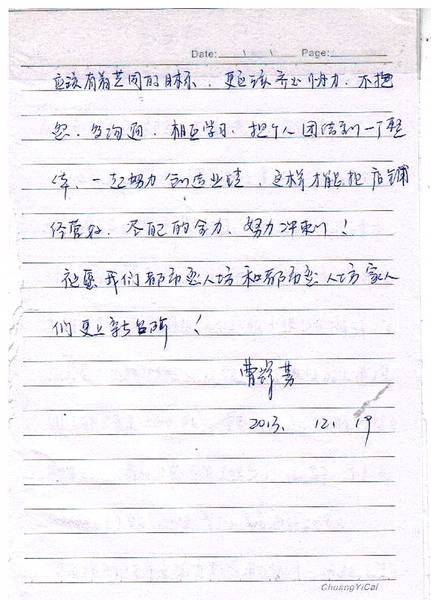 Date: \ \ Page:
应该有着共同的目标，更应该齐心协力，不抱
怨，多沟通，相互学习，把个人团结到一个整
体，一起努力创造业绩，这样才能把店铺
经营好，尽己的全力，努力冲刺！
祝愿我们都市丽人坊和都市丽人坊家人
们更上新台阶！
2013. 12. 19
ChuangYiCai